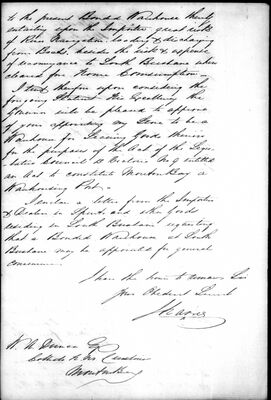 to the present Bonded Warehouse thereby
entailing upon the Importer great risk
of Fire
from Boats, besides the risk & expense
of conveyance to South Brisbane when
cleared for Home Consumption
I trust therefore upon considering the
foregoing Statement His Excellency the
Governor will be pleased to approve
of your appointing my Store to be a
Warehouse for Securing Goods therein
for the purposes of the Act of the Legis-
lative Council
an Act to constitute Moreton Bay a
Warehousing Port.
I enclose a letter from the Importers
& Dealers in Spirits and other Goods
residing in South Brisbane requesting
that a Bonded Warehouse at South
Brisbane may be appointed for general
convenience.
I have the honor to remain Sir
Your Obedient Servant
W. A. Duncan Esq
Collector of Her Customs
Moreton Bay